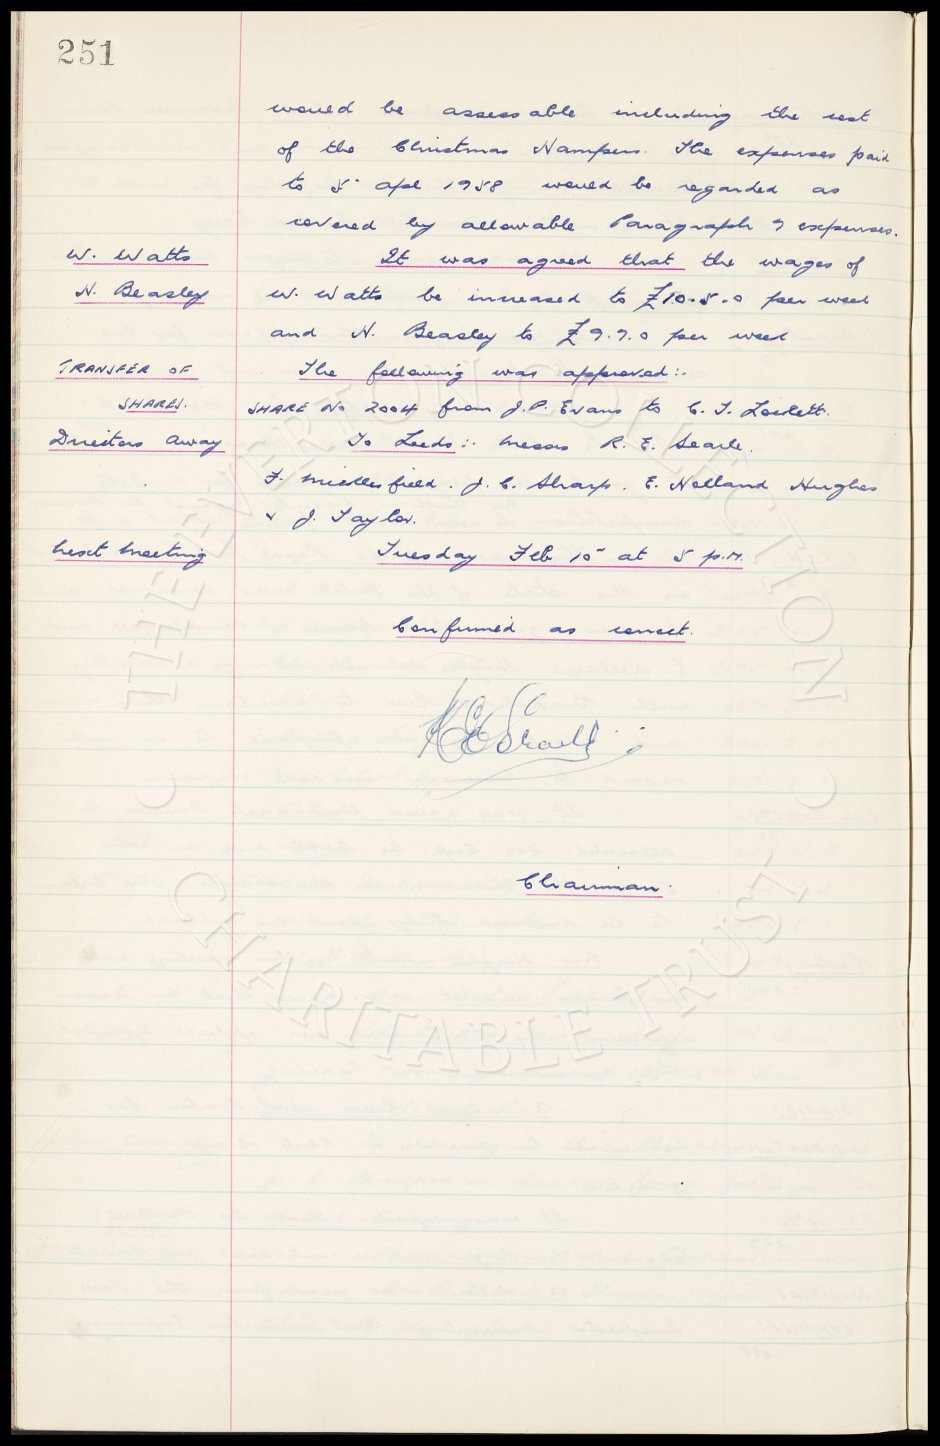 251
would be assessable including the cost
of the Christmas Hampers. The expenses paid
to 5 apl 1958 would be regarded as
covered by allowable Paragraph 7 expenses.
W. Watts It was agreed that the wages of
H. Beasley W. Watts be increased to £10.5.0 per week
and H. Beasley to £9.9.0 per week
TRANSFER OF The following was approved:-
SHARES. SHARE No 2004 from J.P. Evans to C. J. Lockett.
Directors Away To Leeds:- Messrs R. E. Searle.
F. Micklesfield. J. C. Sharp. E. Holland Hughes
& J. Taylor.
Next Meeting Tuesday Feb 10" at 5 p.m.
Confirmed as correct.
Chairman.
THE EVERTON COLLECTION
CHARITABLE TRUST